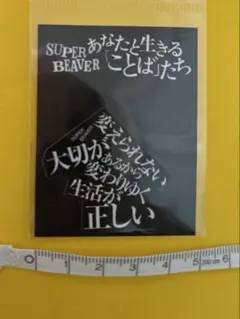 SUPER BEAVER
あなたと生きる
「ことば」たち
SUPER BEAVER
変えられない
大切が
あるから
変わりゆく
生活が
正しい
0 1 2 3 4 5 6